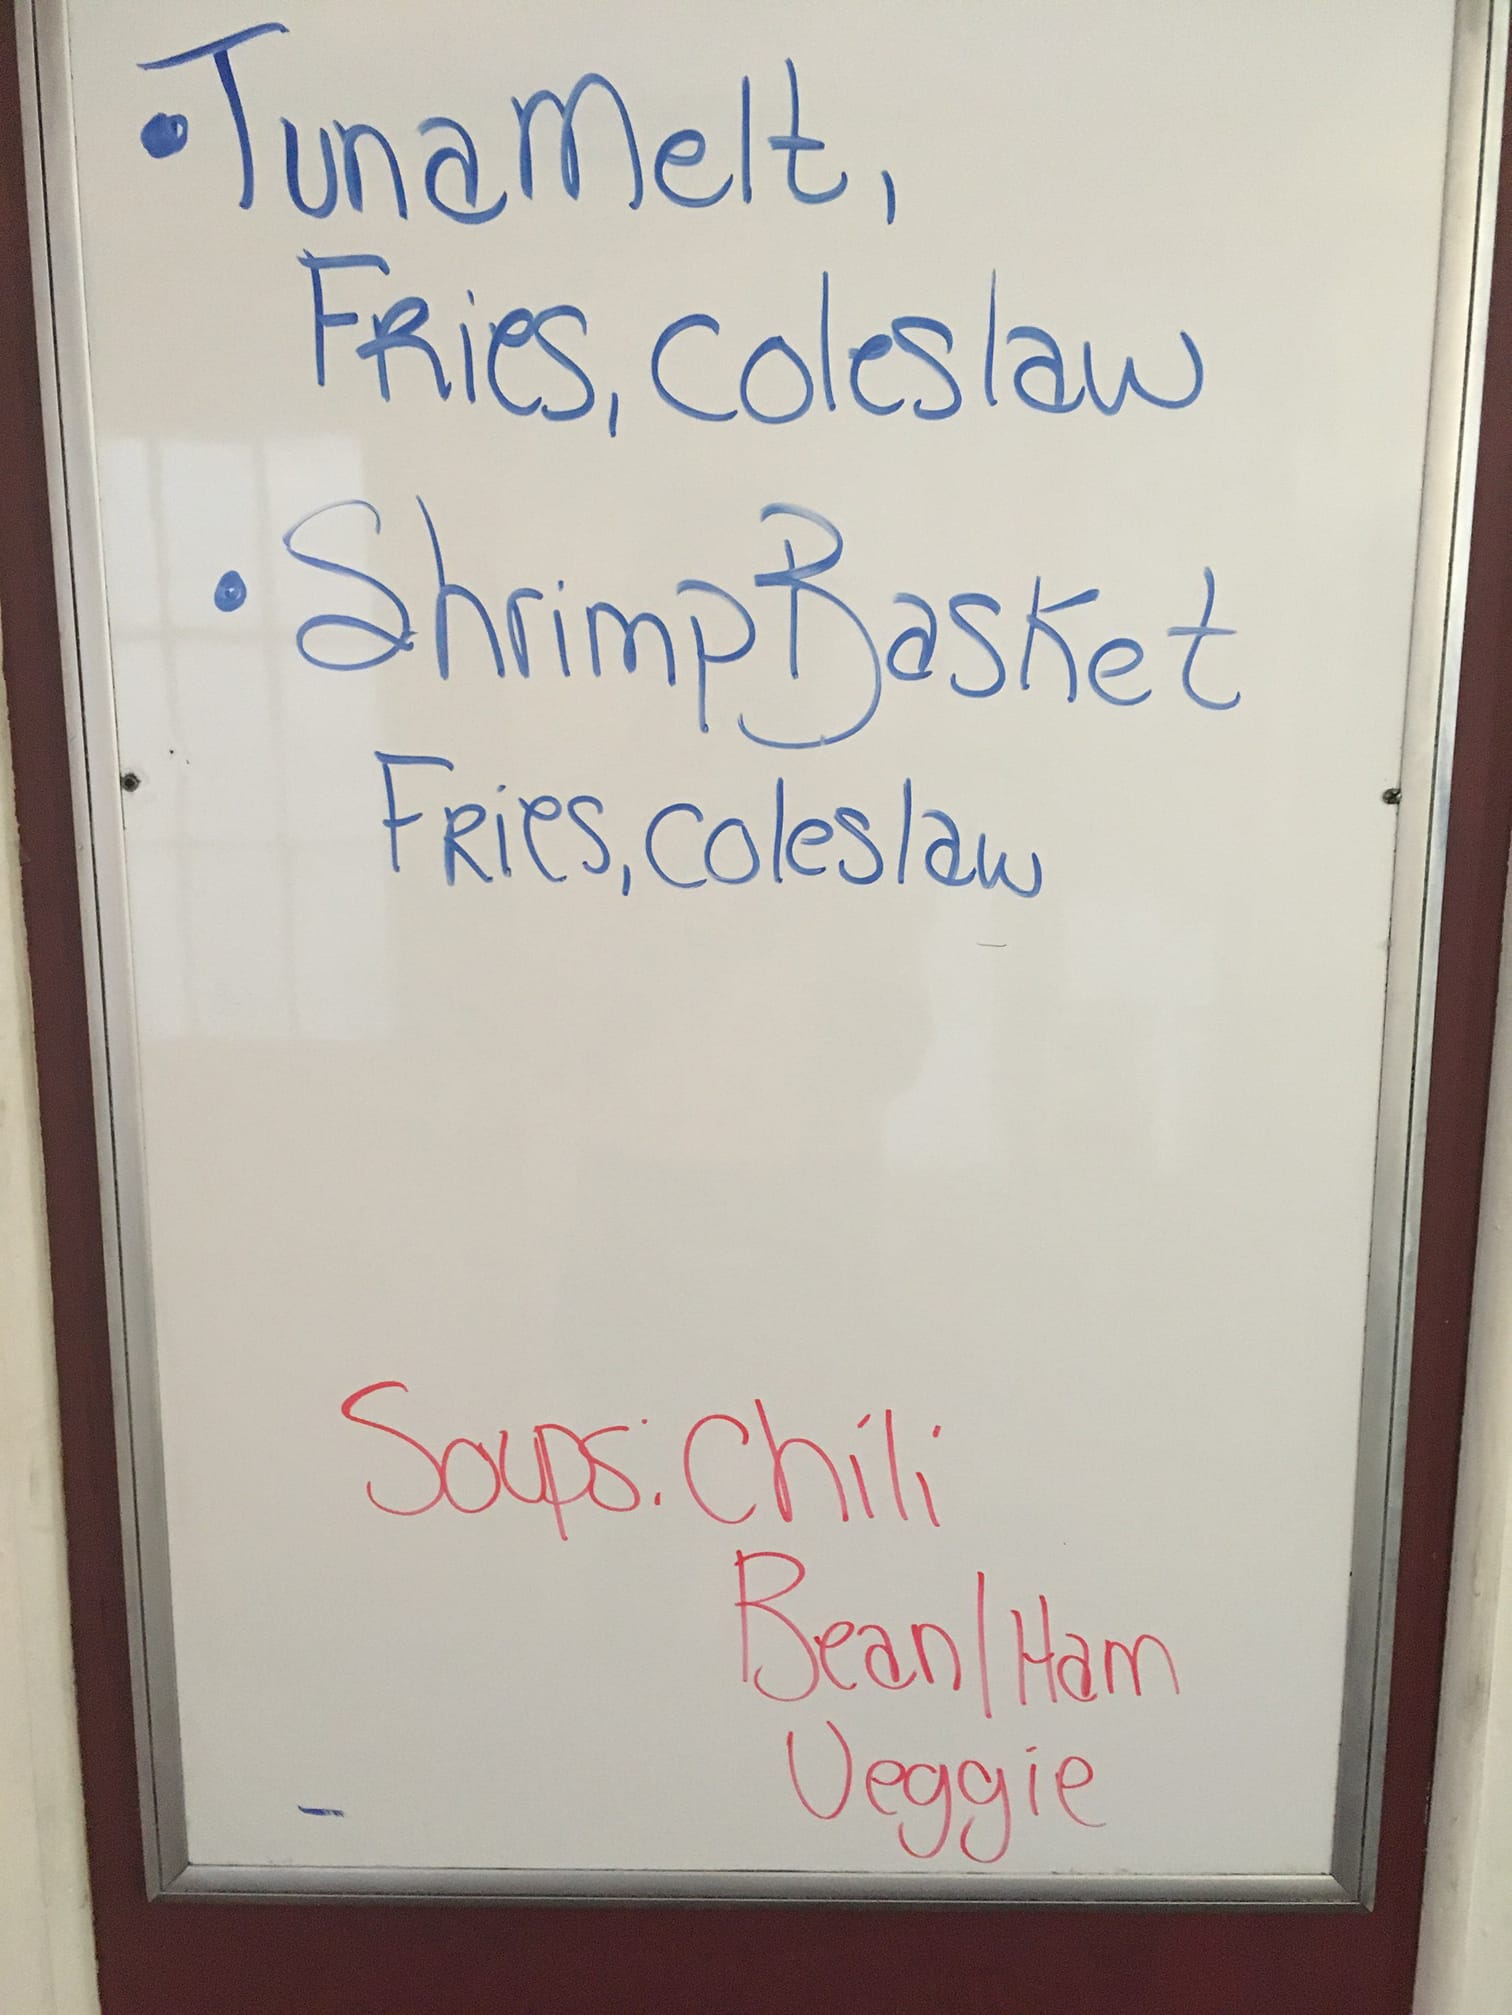 • Tuna Melt,
Fries, coleslaw
• Shrimp Basket
Fries, coleslaw
Soups: Chili
Bean/Ham
Veggie